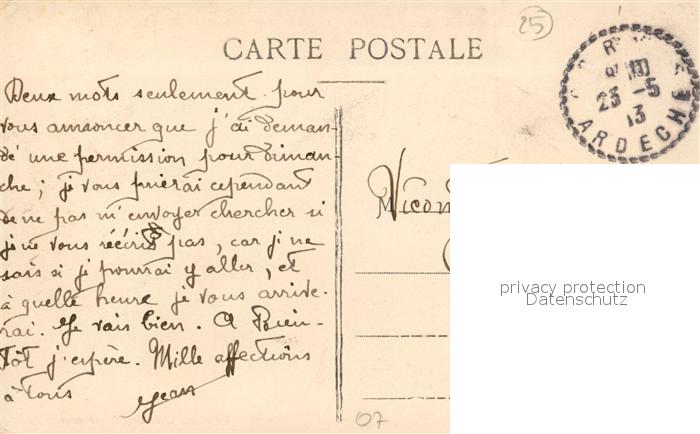 25
CARTE POSTALE
23 -5
13
ARDECHE
Deux mots seulement pour
vous annoncer que j'ai deman-
dé une permission pour diman-
che; je vous prierai cependant
de ne pas m'envoyer chercher si
je ne vous récris pas, car je ne
sais si je pourrai y aller, et
à quelle heure je vous arrive-
rai. Je vais bien. A Bien-
tôt j'espère. Mille affections
à tous
Jean
M
Vicom
privacy protection
Datenschutz
07